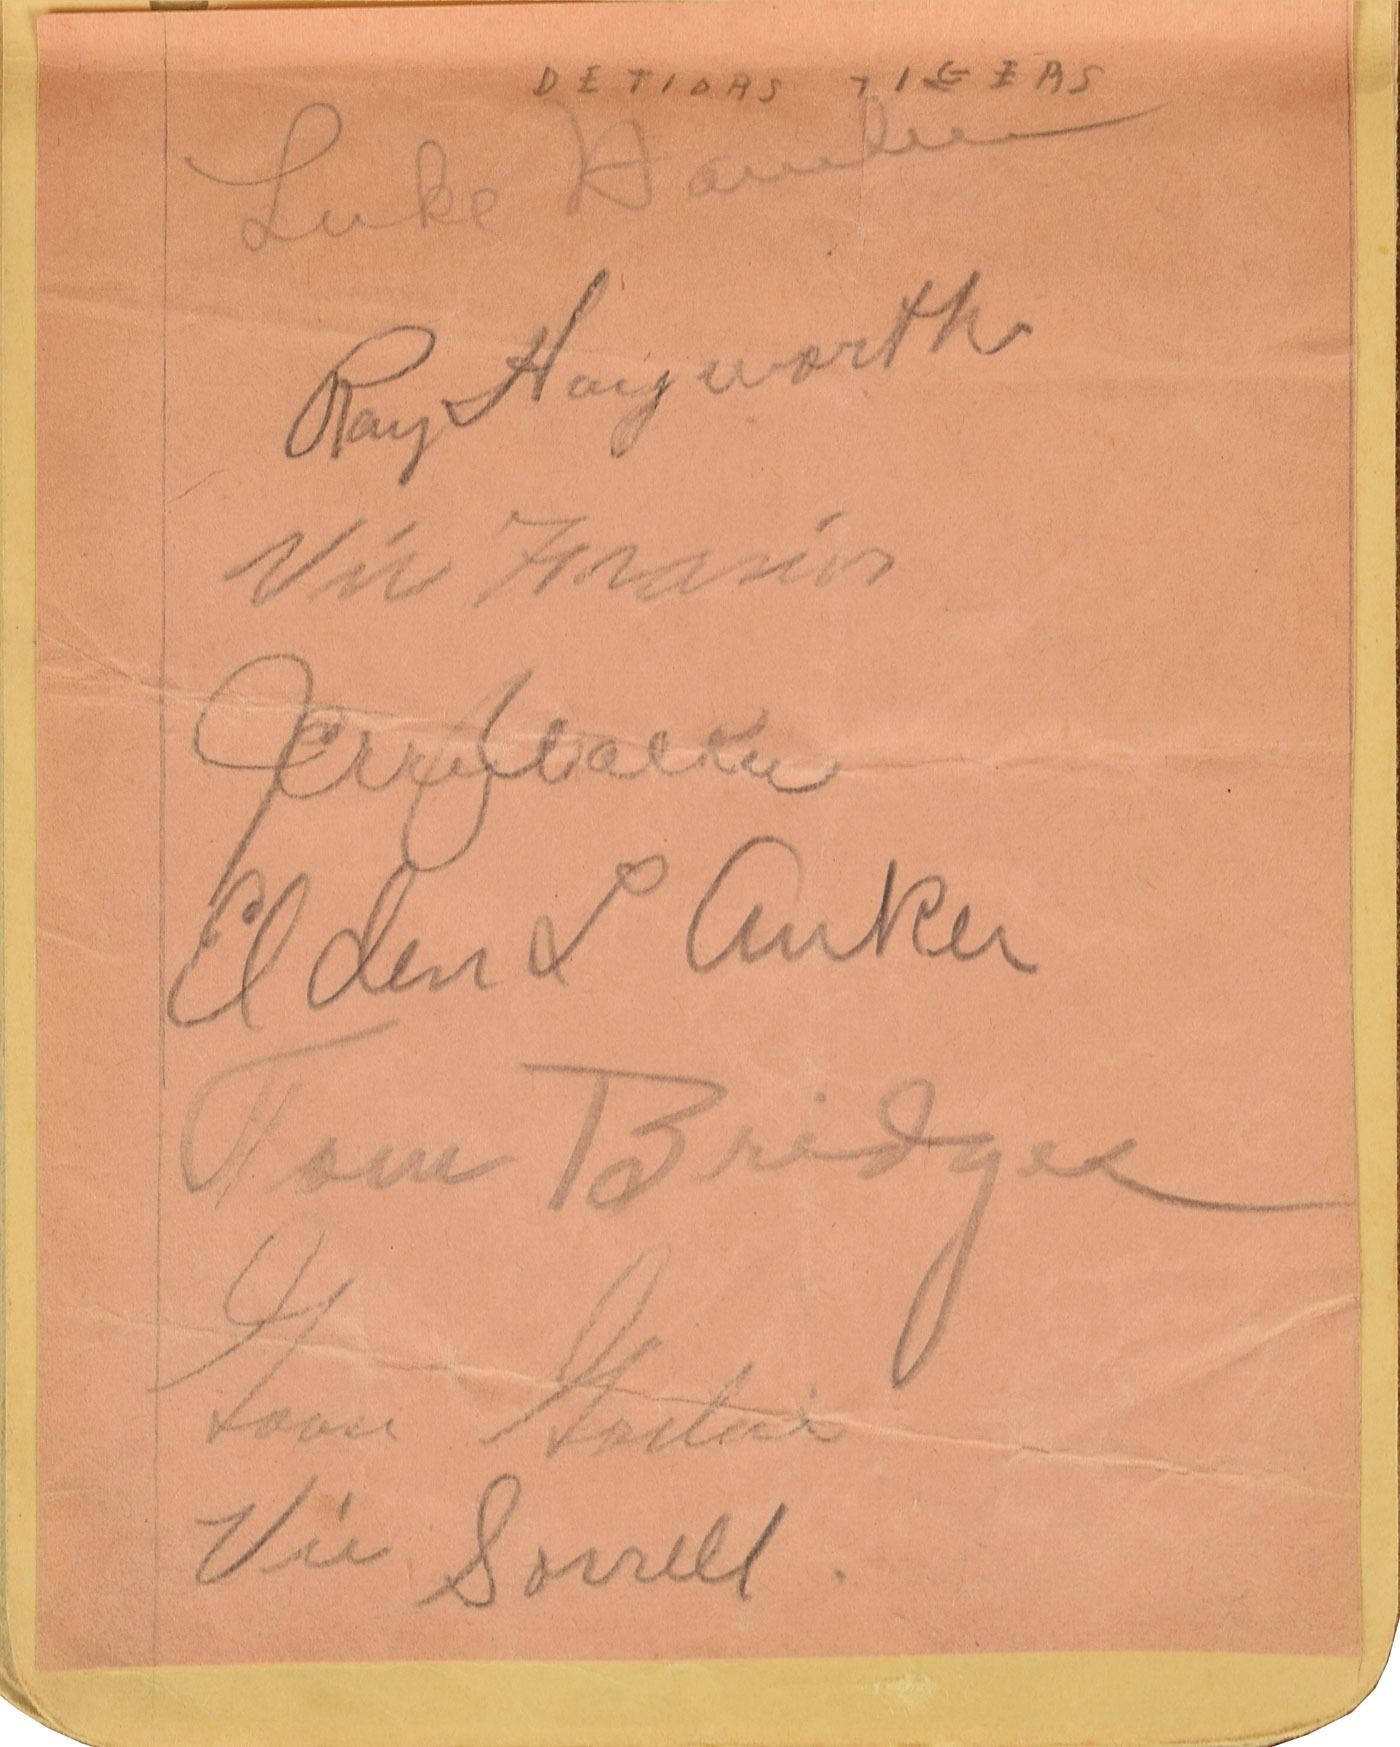 DETIORS TIGERS
Luke Hamlin
Ray Hayworth
Vic Frasier
Jerry Walker
Elden L Auker
Tom Bridges
Goose Goslin
Vic Sorrell.